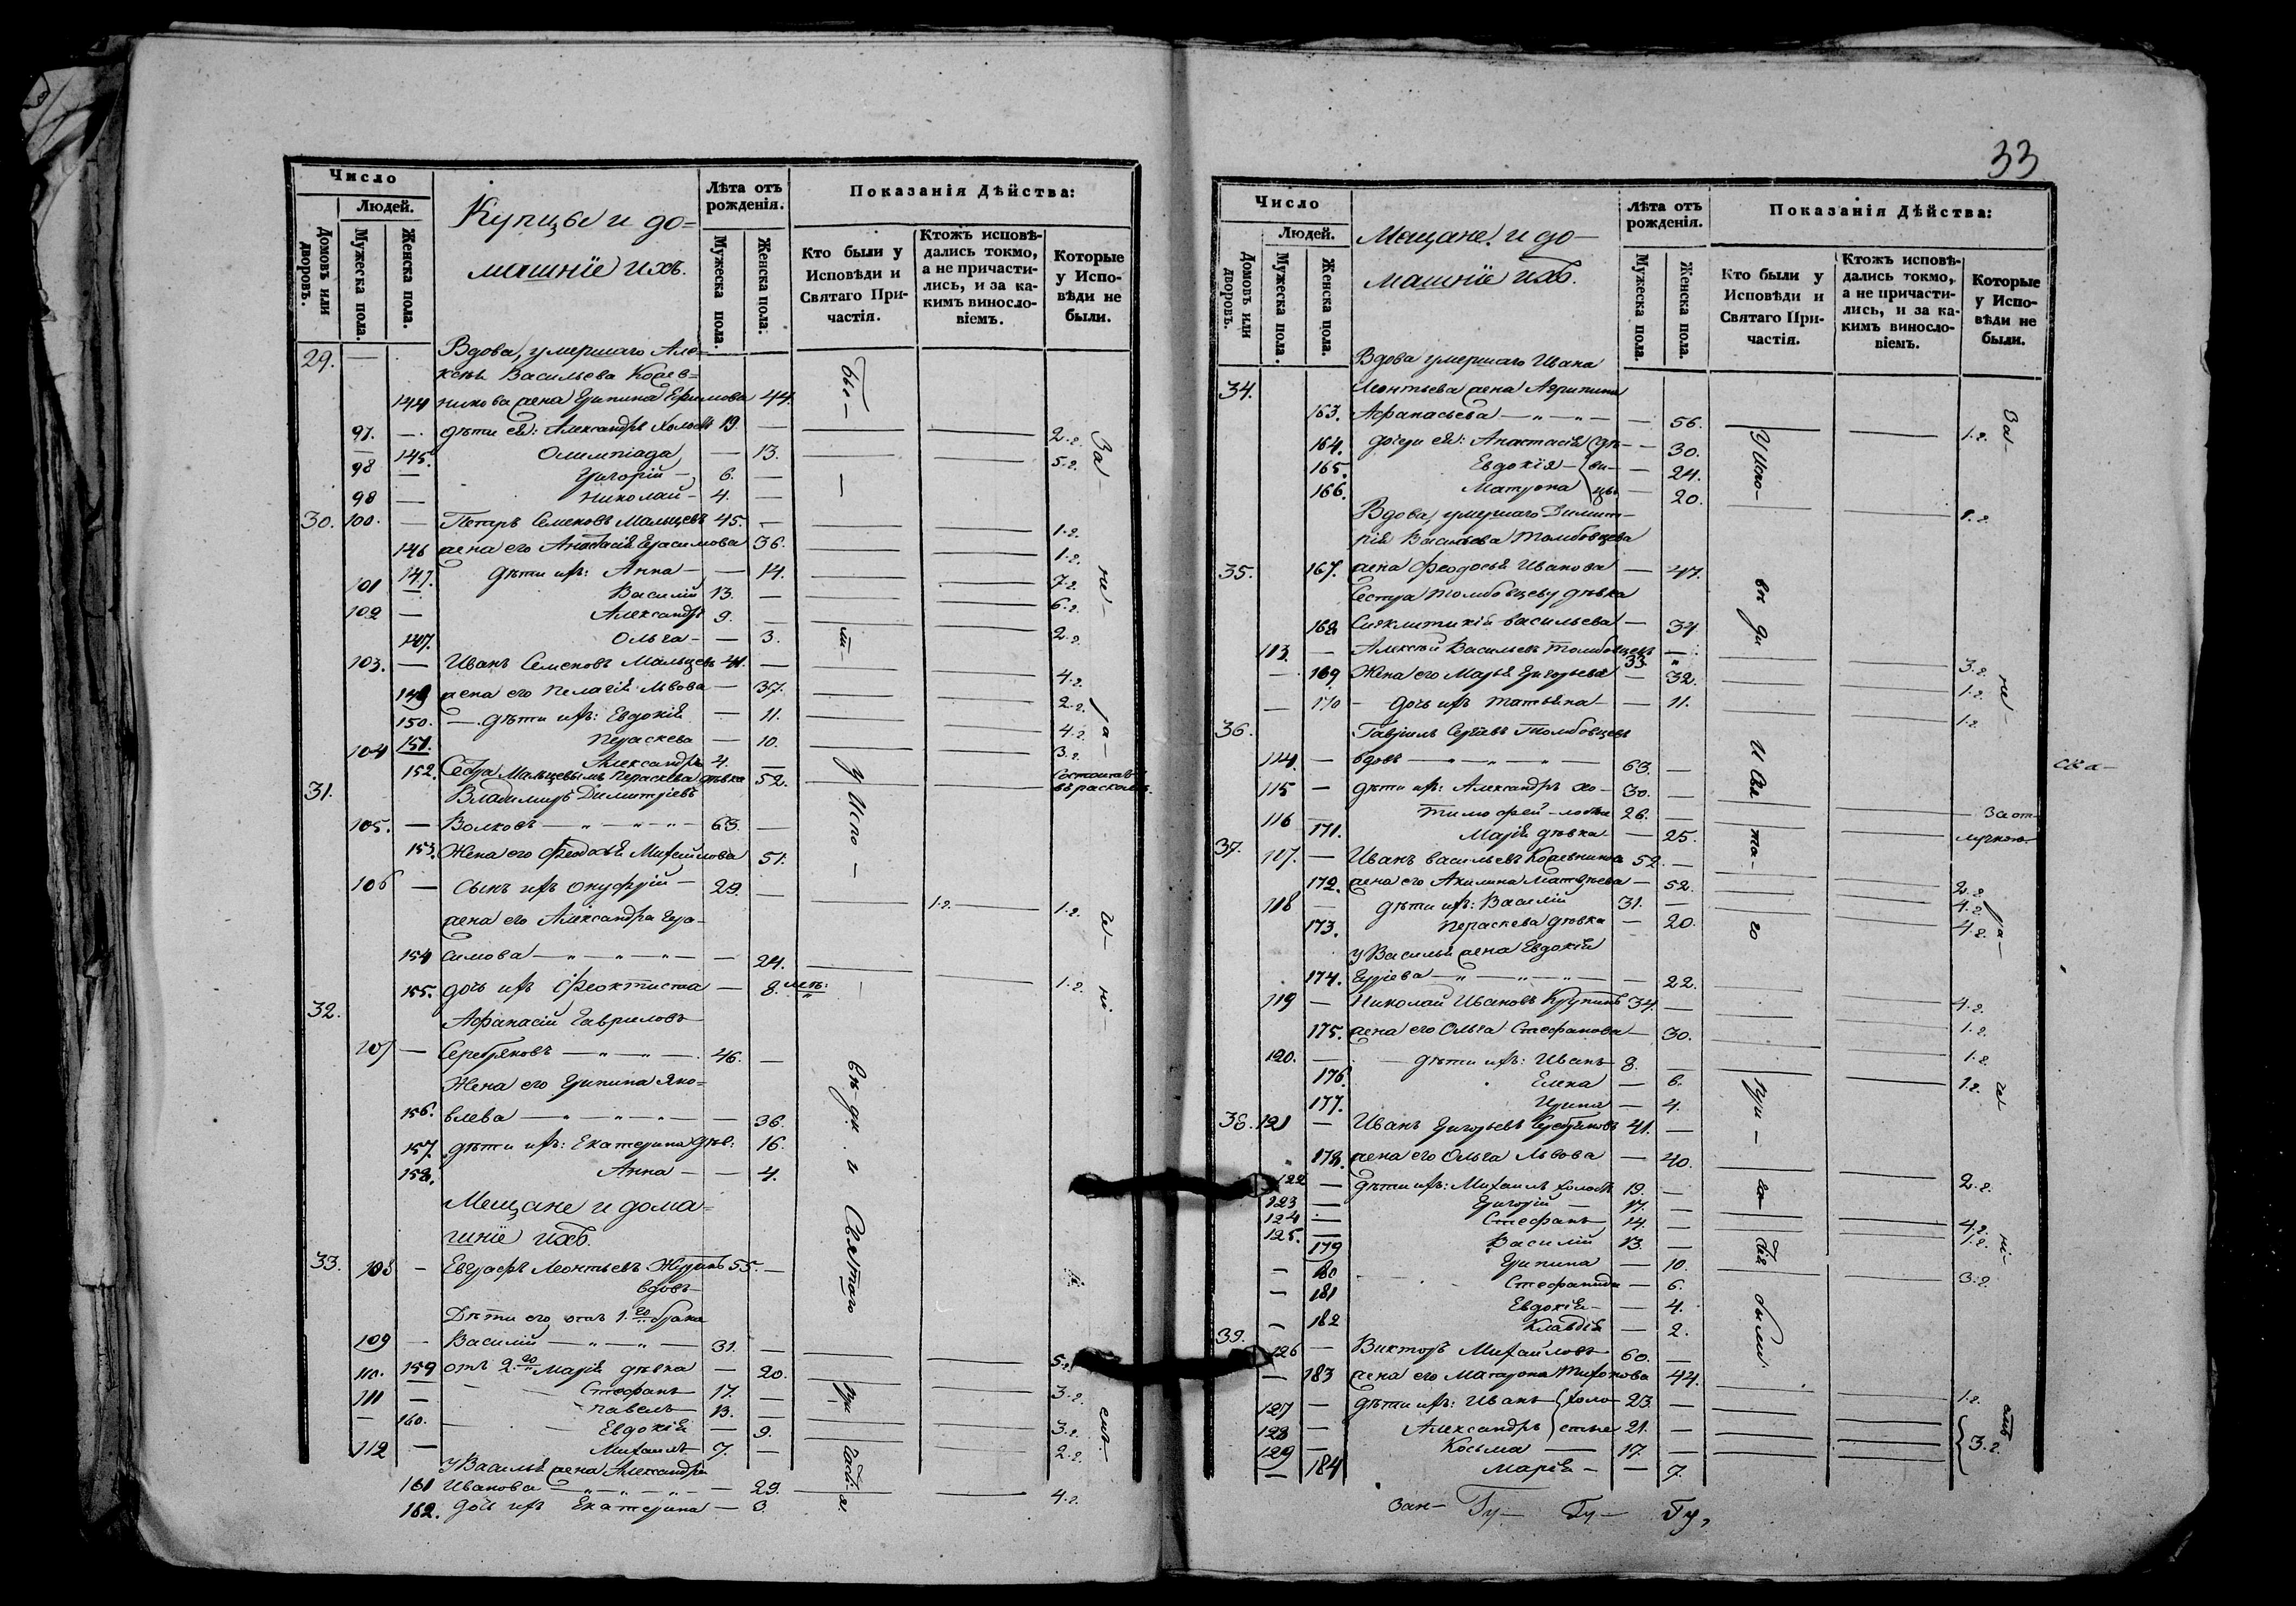 33
Число
Людей.
Домовъ или дворовъ.
Мужеска пола.
Женска пола.
Купцы и до=
машніе ихъ.
Лѣта отъ рожденія.
Мужеска пола.
Женска пола.
Показанія Дѣйства:
Кто были у Исповѣди и Святаго Причастія.
Ктожъ исповѣдались токмо, а не причастились, и за какимъ винословіемъ.
Которые у Исповѣди не были.
29. Вдова, умершаго Але=
ксѣя Васильева Кожев=
144 никова жена Ирина Ефимова 44.
97. дѣти ея: Александръ холостъ 19. 2.г.
145. Олимпіада 13. 5.г.
98 Григорій 6.
98 Николай 4.
30. 100. Петръ Семеновъ Мальцевъ 45. 1.г.
146 жена его Анастасія Герасимова 36. 1.г.
147. дѣти ихъ: Анна 14. 7.г.
101 Василій 13. 6.г.
102 Александръ 9. 2.г.
147. Ольга 3.
103. Иванъ Семеновъ Мальцевъ 41. 4.г.
149 жена его Пелагія Львова 37. 2.г.
150. дѣти ихъ: Евдокія 11. 4.г.
151. Пераскева 10. 3.г.
104 Александръ 4.
152. Сестра Мальцевымъ Пераскева дѣвка 52. Состоитъ въ расколѣ.
31. Владимиръ Димитріевъ
105. Волковъ 63.
153. Жена его Феодосія Михайлова 51.
106 Сынъ ихъ Онуфрій 29. 1.г. 1.г.
жена его Александра Гера-
154 симова 24. 1.г.
155. дочь ихъ Феоктиста 8. лѣтъ:
32. Афанасій Гавриловъ
107 Серебряковъ 46.
Жена его Ирина Яко=
156. влева 36.
157. дѣти ихъ: Екатерина дѣв: 16.
158. Анна 4.
Мещане и дома=
шніе ихъ.
33. 108 Евграфъ Леонтьевъ 55.
вдовъ
Дѣти его отъ 1.го брака
109 Василій 31. 5.г.
159 отъ 2.го Марія дѣвка 20. 3.г.
110. Стефанъ 17.
111 Павелъ 13. 3.г.
160. Евдокія 9. 2.г.
112 Михаилъ 7.
У Василья жена Александра
161 Иванова 29. 4.г.
162. дочь ихъ Екатерина 3.
бы-
ли
У Испо-
вѣди и Святаго
При
За-
не-
ра-
Число
Людей.
Домовъ или дворовъ.
Мужеска пола.
Женска пола.
Мещане и до-
машніе ихъ.
Лѣта отъ рожденія.
Мужеска пола.
Женска пола.
Показанія Дѣйства:
Кто были у Исповѣди и Святаго Причастія.
Ктожъ исповѣдались токмо, а не причастились, и за какимъ винословіемъ.
Которые у Исповѣди не были.
Вдова умершаго Ивана
34. Леонтьева жена Агрипина
163. Афанасьева 56. 1.г.
164. дочери ея: Анастасія дѣ- 30.
165. Евдокія ви- 24.
166. Матрона цы 20. 1.г.
Вдова, умершаго Димит-
рія Васильева Толмбовцева
35. 167. жена Феодосья Иванова 47.
Сестра Толмбовцеву дѣвка
168 Синклитикія Васильева 34.
113. Алексѣй Васильевъ Толмбовцевъ 33. 3.г.
169 Жена его Марья Григорьева 32. 1.г.
170 дочь ихъ Татьяна 11. 1.г.
36. Гавріилъ Сергѣевъ Толмбовцевъ
114. вдовъ 63.
115 дѣти ихъ: Александръ хо- 30.
116 Тимофей лосты 26. За от-
171. Марія дѣвка 25. лучкою
37. 117. Иванъ Васильевъ Кожевниковъ 52.
172. жена его Акилина Матвѣева 52. 2.г.
118 дѣти ихъ: Василій 31. 4.г.
173. Пераскева дѣвка 20. 4.г.
У Василья жена Евдокія
174. 22.
119 Николай Ивановъ Крупинъ 34. 4.г.
175. жена его Ольга Стефанова 30. 1.г.
120. дѣти ихъ: Иванъ 8. 1.г.
176. Елена 6. 1.г.
177. Ирина 4.
38. 121 Иванъ Григорьевъ Серебряковъ 41.
178. жена его Ольга Львова 40.
122 дѣти ихъ: Михаилъ холостъ 19. 2.г.
123 Григорій 17.
124 Стефанъ 14. 4.г.
125. Василій 13. 1.г.
179 Ирина 10.
180 Стефанида 6. 3.г.
181 Евдокія 4.
182 Клавдія 2.
39. 126 Викторъ Михайловъ 60.
183 жена его Матрона Тихонова 44.
127 дѣти ихъ: Иванъ холо- 23. 1.г.
128 Александръ стые 21.
129 Косьма 17. 3.г.
184 Марія 7.
У Испо-
вѣ
ди
И Свя
та-
го
При-
ча-
стія
были.
За-
не-
ра-